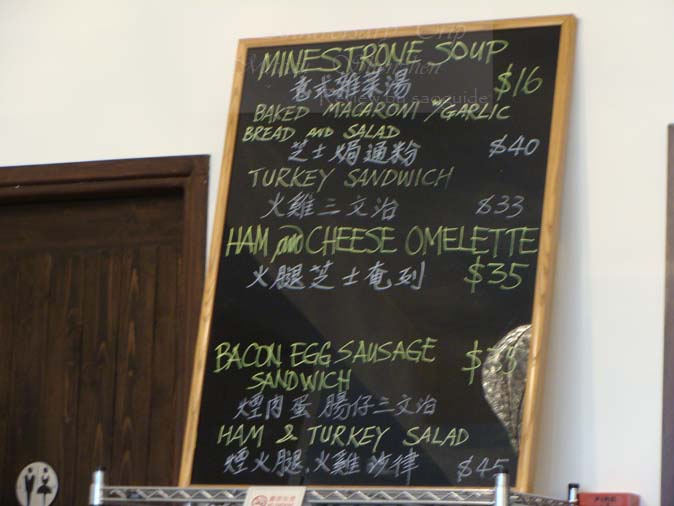 MINESTRONE SOUP
意式雜菜湯 $16
BAKED MACARONI W/GARLIC
BREAD AND SALAD
芝士焗通粉 $40
TURKEY SANDWICH
火雞三文治 $33
HAM and CHEESE OMELETTE
火腿芝士奄列 $35
BACON EGG SAUSAGE
SANDWICH
煙肉蛋腸仔三文治
HAM & TURKEY SALAD
煙火腿.火雞沙律 $45
FIRE